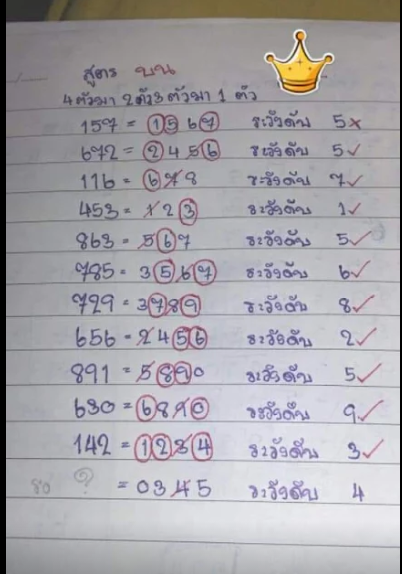 สูตร บน
4 ตัวมา 2 ตัว 3 ตัวมา 1 ตัว
157 = 1567 ระวังดับ 5 ×
672 = 2456 ระวังดับ 5 ✓
116 = 678 ระวังดับ 7 ✓
453 = 123 ระวังดับ 1 ✓
863 = 567 ระวังดับ 5 ✓
785 = 3567 ระวังดับ 6 ✓
729 = 3789 ระวังดับ 8 ✓
656 = 2456 ระวังดับ 2 ✓
891 = 5890 ระวังดับ 5 ✓
630 = 6890 ระวังดับ 9 ✓
142 = 1234 ระวังดับ 3 ✓
รอ ? = 0345 ระวังดับ 4